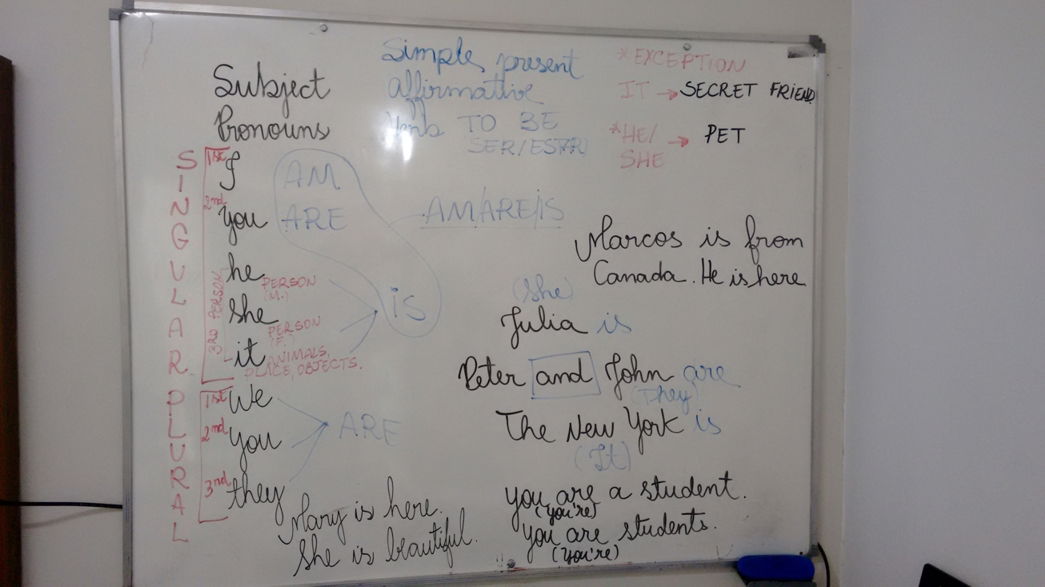 Subject
Pronouns
Simple present
affirmative
Verb TO BE
SER/ESTAR
*EXCEPTION
IT → SECRET FRIEND
*HE/
SHE → PET
SINGULAR
1ST I AM
2nd you ARE
AM/ARE/IS
3RD PERSON
he PERSON
(M.)
she PERSON
(F.)
it ANIMALS,
PLACE, OBJECTS.
is
PLURAL
1ST We
2nd you ARE
3nd they
Marcos is from
Canada. He is here
(She)
Julia is
Peter and John are
(They)
The New York is
(It)
Mary is here.
She is beautiful.
you are a student.
(you're)
you are students.
(you're)